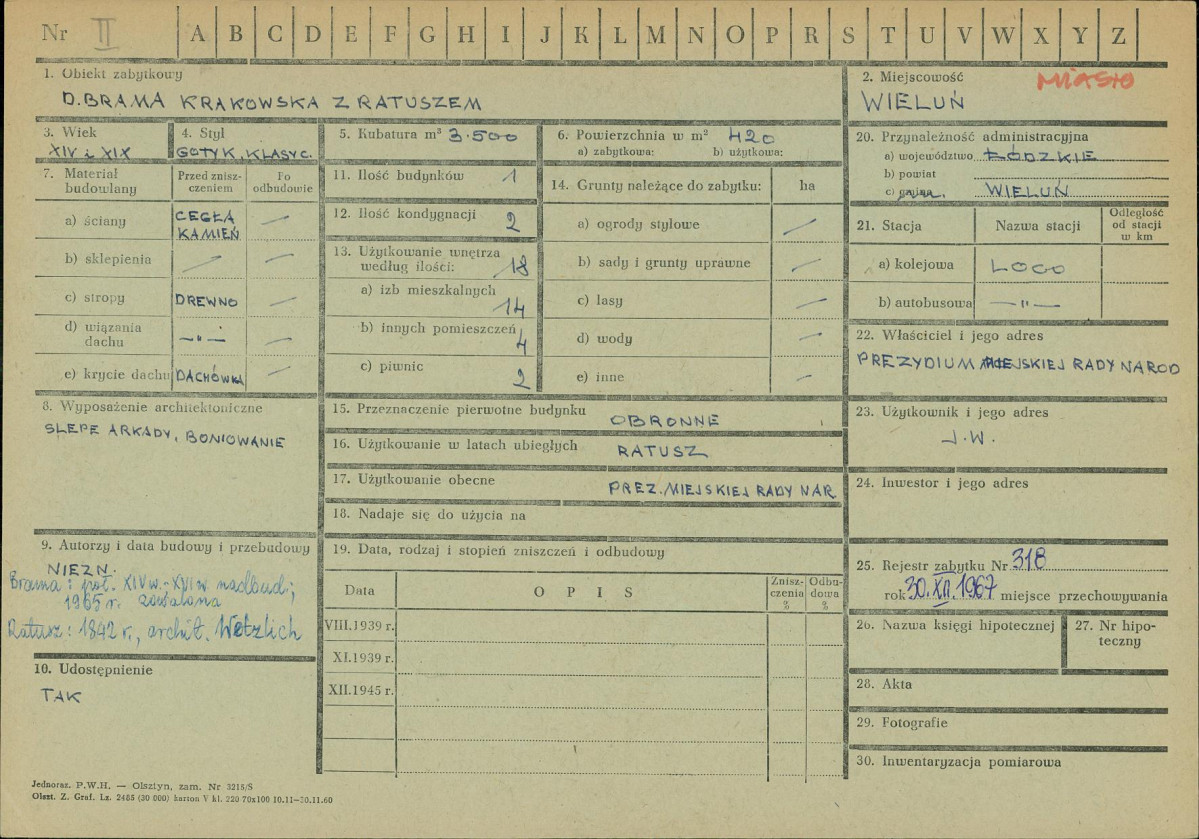 Nr II A B C D E F G H I J K L M N O P R S T U V W X Y Z
1. Obiekt zabytkowy
D. BRAMA KRAKOWSKA Z RATUSZEM
2. Miejscowość MIASTO
WIELUŃ
3. Wiek
XIV i XIX
4. Styl
GOTYK, KLASYC.
5. Kubatura m³ 3.500
6. Powierzchnia w m² 420
a) zabytkowa: b) użytkowa:
7. Materiał budowlany
Przed zniszczeniem
Po odbudowie
a) ściany CEGŁA KAMIEŃ —
b) sklepienia — —
c) stropy DREWNO —
d) wiązania dachu —"— —
e) krycie dachu DACHÓWKA —
8. Wyposażenie architektoniczne
ŚLEPE ARKADY, BONIOWANIE
9. Autorzy i data budowy i przebudowy
NIEZN.
Brama: poł. XIV w. - XVI w nadbud.;
1965 r. zawalona
Ratusz: 1842 r., archit. Wetzlich
10. Udostępnienie
TAK
11. Ilość budynków 1
12. Ilość kondygnacji 2
13. Użytkowanie wnętrza
według ilości: 18
a) izb mieszkalnych
14
b) innych pomieszczeń
4
c) piwnic 2
14. Grunty należące do zabytku: ha
a) ogrody stylowe —
b) sady i grunty uprawne —
c) lasy —
d) wody —
e) inne —
15. Przeznaczenie pierwotne budynku OBRONNE
16. Użytkowanie w latach ubiegłych RATUSZ
17. Użytkowanie obecne PREZ. MIEJSKIEJ RADY NAR
18. Nadaje się do użycia na
19. Data, rodzaj i stopień zniszczeń i odbudowy
Data OPIS Zniszczenia % Odbudowa %
VIII.1939 r.
XI.1939 r.
XII.1945 r.
20. Przynależność administracyjna
a) województwo ŁÓDZKIE
b) powiat
c) gmina WIELUŃ
21. Stacja Nazwa stacji Odległość od stacji w km
a) kolejowa LOCO
b) autobusowa —"—
22. Właściciel i jego adres
PREZYDIUM MIEJSKIEJ RADY NAROD
23. Użytkownik i jego adres
J.W.
24. Inwestor i jego adres
25. Rejestr zabytku Nr 318
rok 30.XII.1967 miejsce przechowywania
26. Nazwa księgi hipotecznej
27. Nr hipoteczny
28. Akta
29. Fotografie
30. Inwentaryzacja pomiarowa
Jednoraz. P.W.H. — Olsztyn, zam. Nr 3215/S
Olszt. Z. Graf. Lz. 2485 (30 000) karton V kl. 220 70x100 10.11—30.11.60